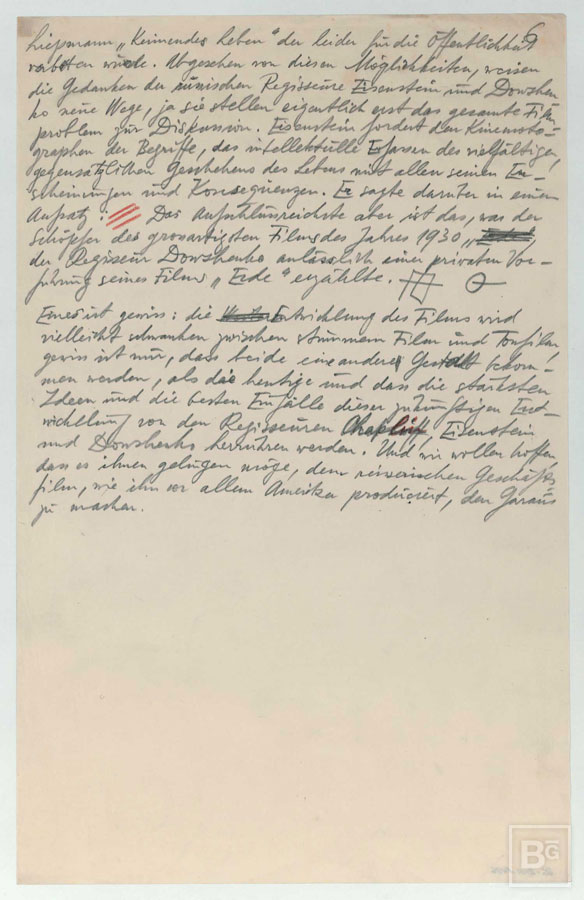 6
Liepmann „Keimendes Leben" der leider für die Öffentlichkeit
verboten wurde. Abgesehen von diesen Möglichkeiten, weisen
die Gedanken der russischen Regisseure Eisenstein und Dowshen
ko neue Wege, ja sie stellen eigentlich erst das gesamte Film
problem zur Diskussion. Eisenstein fordert den Kinemato-
graphen der Begriffe, das intellektuelle Erfassen des vielfältigen,
gegensätzlichen Geschehens des Lebens mit allen seinen Er-
scheinungen und Konsequenzen. Er sagte darüber in einem
Aufsatz: Das Aufschlussreichste aber ist das, was der
Schöpfer des grossartigsten Films des Jahres 1930 „
der Regisseur Dowshenko anlässlich einer privaten Vor-
führung seines Films „Erde" erzählte.
Eines ist gewiss: die Entwicklung des Films wird
vielleicht schwanken zwischen stummem Film und Tonfilm,
gewiss ist nur, dass beide eine andere Gestalt bekom-
men werden, als die heutige und dass die stärksten
Ideen und die besten Einfälle dieser zukünftigen Ent-
wicklung von den Regisseuren Chaplin, Eisenstein
und Dowshenko herrühren werden. Und wir wollen hoffen,
dass es ihnen gelingen möge, dem Geschäfts
film, wie ihn vor allem Amerika produziert, den Garaus
zu machen.
BG